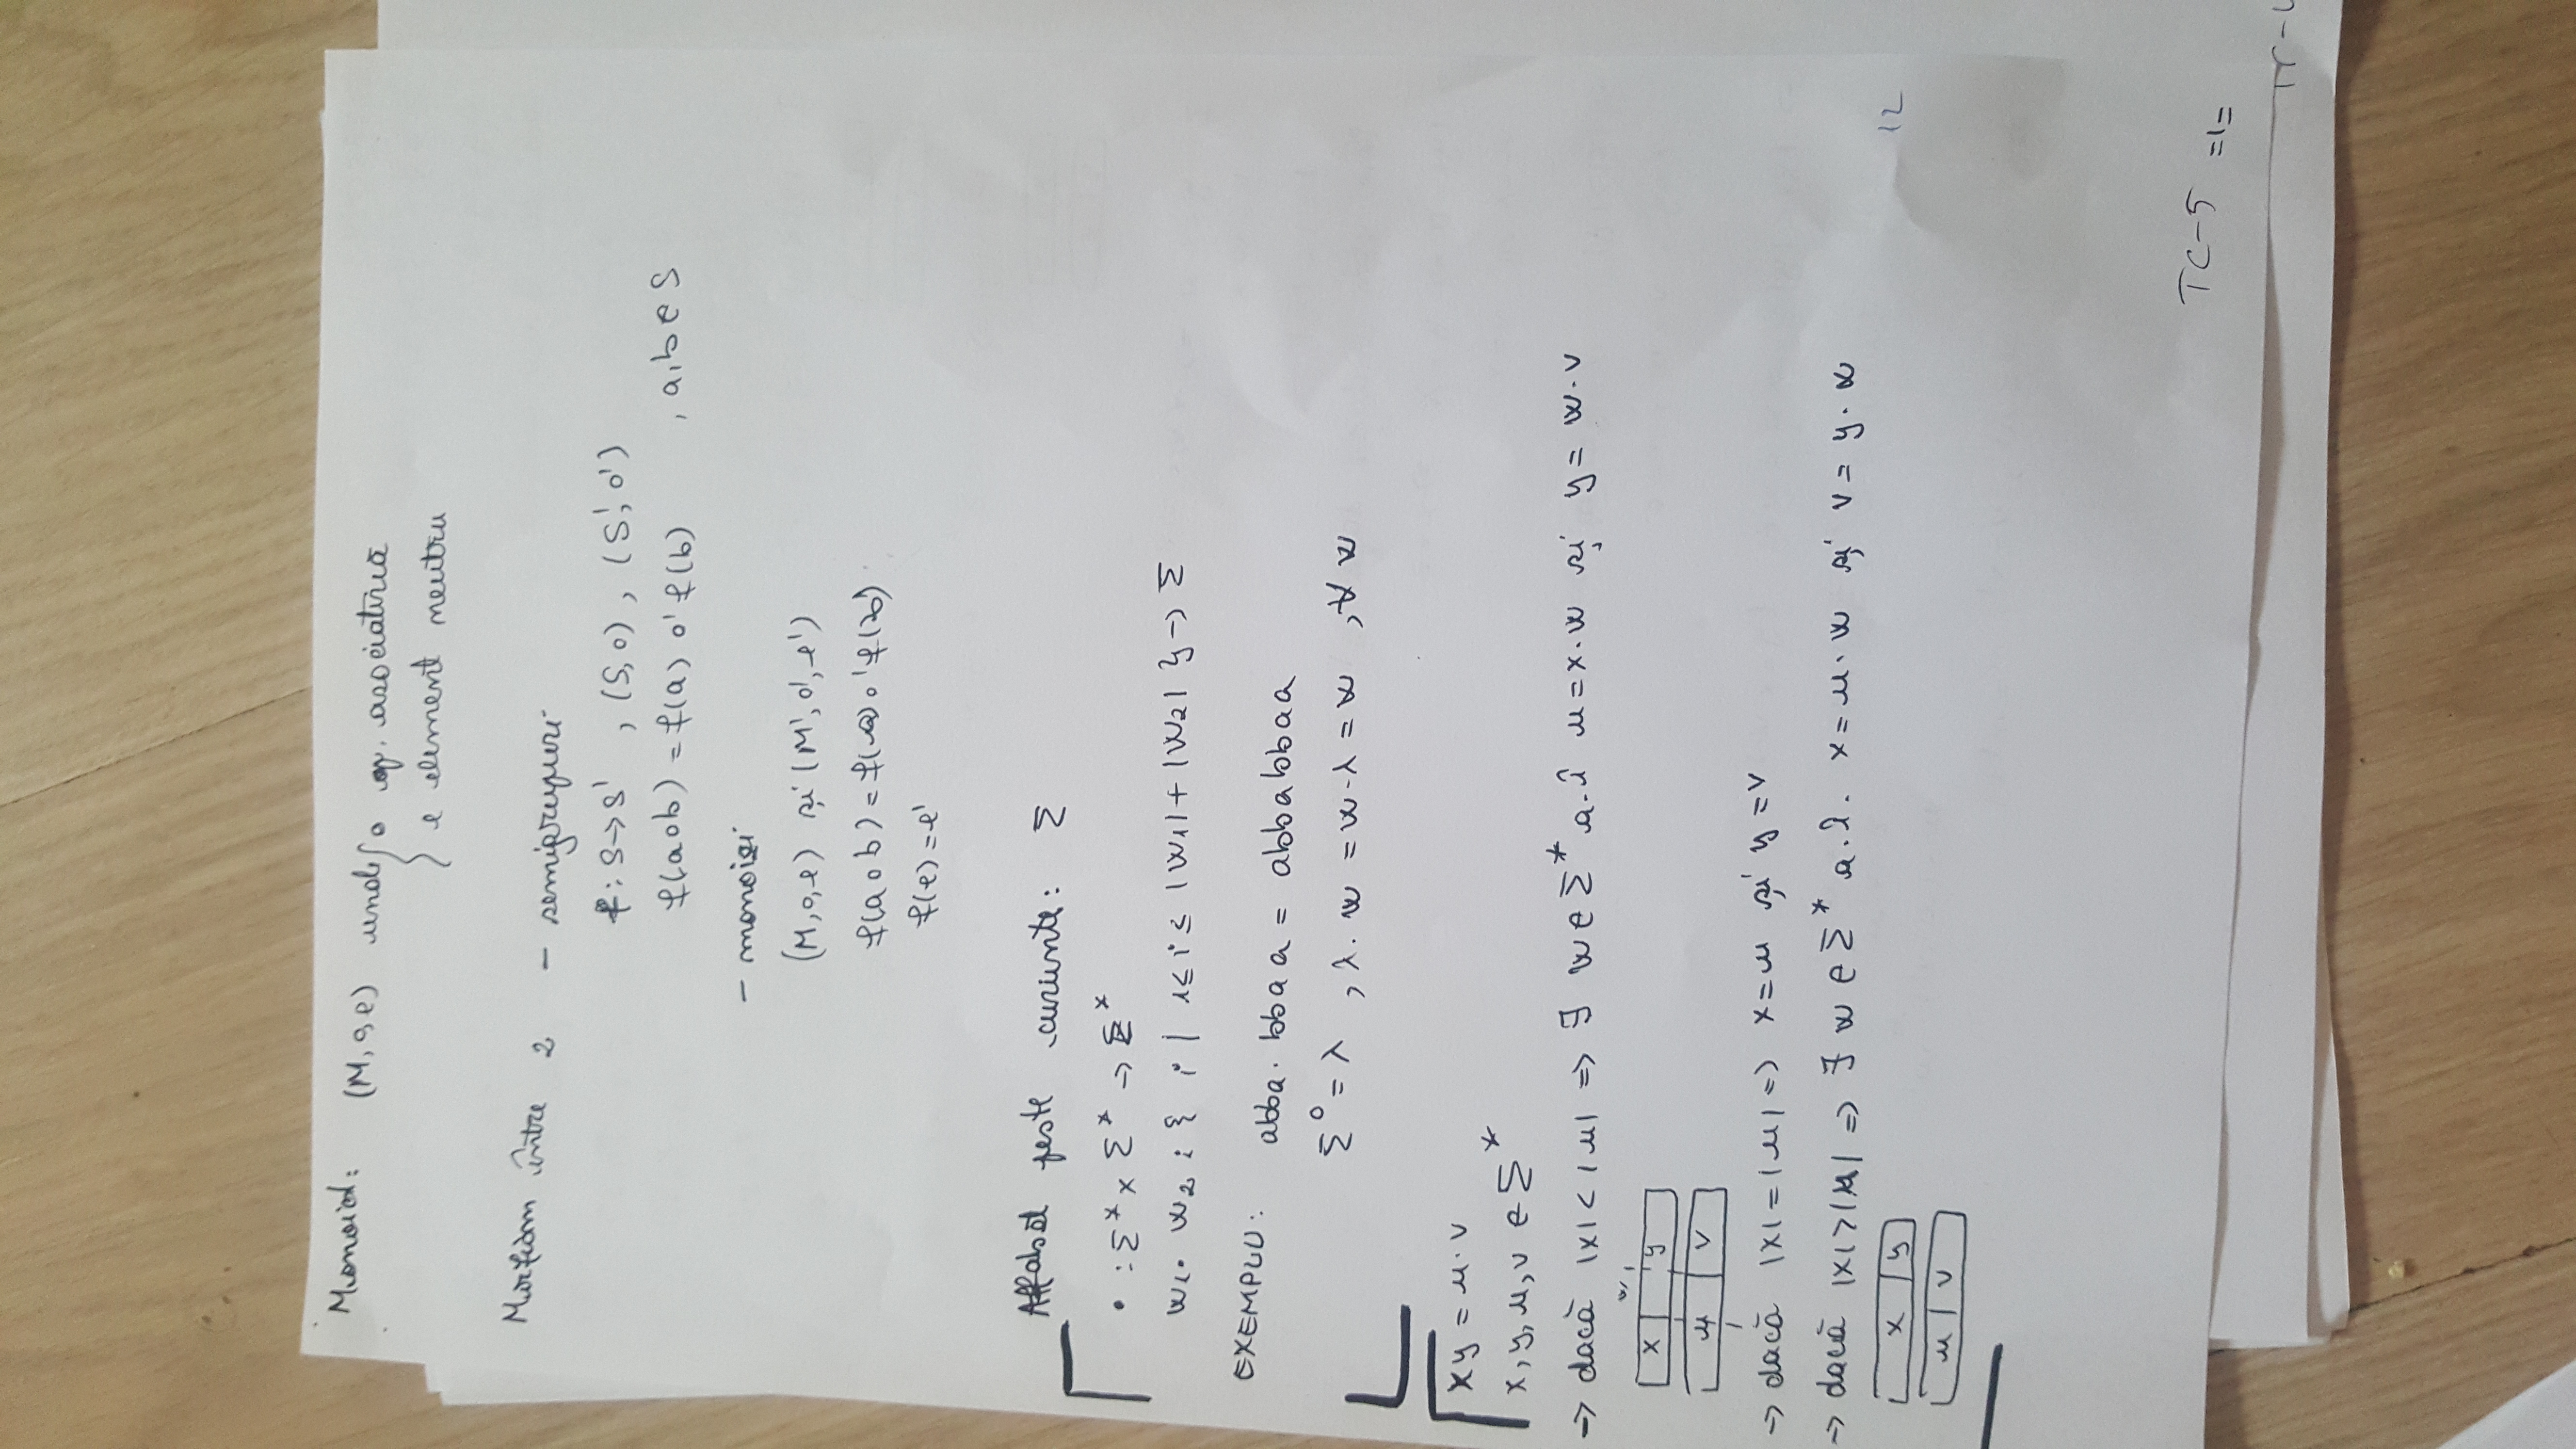 Monoid: (M,∘,e) unde { ∘ op. asociativă
e element neutru
Morfism între 2 - semigrupuri
f: S→S' , (S,∘), (S',∘')
f(a∘b) = f(a) ∘' f(b) , a,b ∈ S
- monoizi
(M,∘,e) și (M',∘',e')
f(a∘b) = f(a)∘'f(b)
f(e)=e'
Alfabet peste cuvinte: Σ
• : Σ* x Σ* → Σ*
w1. w2 : { i | 1≤i≤ |w1|+|w2| } → Σ
EXEMPLU: abba. bbaa = abbabbaa
Σ⁰ = λ , λ. w = w·λ = w , ∀ w
xy = u·v
x,y,u,v ∈ Σ*
→ dacă |x|<|u| => ∃ w∈Σ* a.î u=x·w și y = w·v
w
x y
u v
→ dacă |x|=|u| => x=u și y=v
→ dacă |x|>|u| => ∃ w ∈ Σ* a.î. x=u·w și v= y·w
x y
u v
12
TC-5 =1=